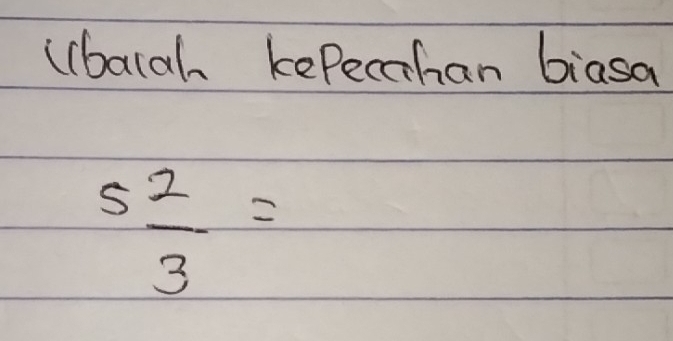 Ubalah kePecahan biasa
5 2/3 =